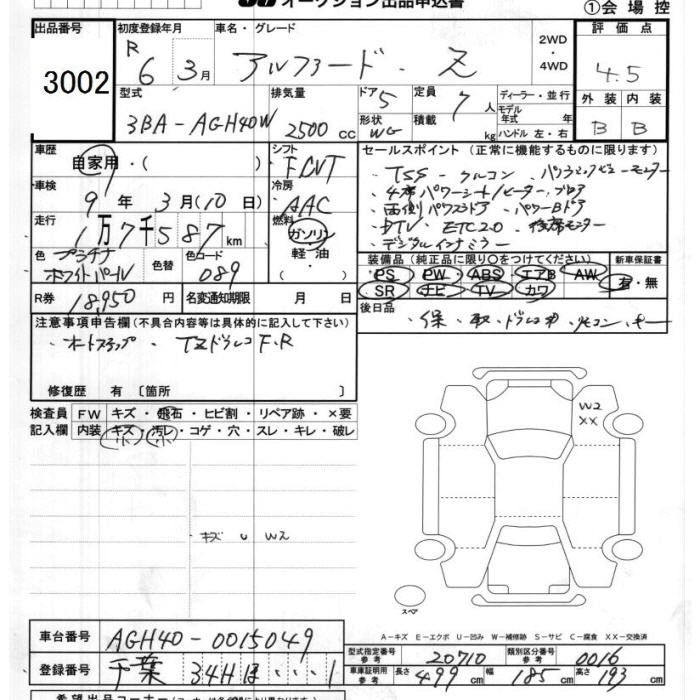 オークション出品申込書
①会場控
出品番号
3002
初度登録年月
R 6 3月
車名・グレード
アルファード・Z
2WD・4WD
評価点
4.5
型式
3BA-AGH40W
排気量
2500 cc
ドア 5
形状 WG
定員 7 人
積載 kg
ディーラー・並行
モデル年式 年
ハンドル 左・右
外装 内装
B B
車歴
自家用・( )
シフト
FCVT
車検
9 年 3 月(10 日)
冷房
AAC
走行
1万7千587km
燃料
ガソリン・軽油・( )
色 プラチナホワイトパール
色替
色コード 089
R券 18,950 円
名変通知期限 月 日
セールスポイント (正常に機能するものに限ります)
・TSS ・クルコン ・パノラミックビューモニター
・4席パワーシート/ヒーター、ブロア
・両側パワスラドア ・パワーBドア
・DTV ・ETC2.0 ・後席モニター
・デジタルインナミラー
装備品(純正品に限り○をつけてください)
PS PW ABS エアB AW
SR ナビ TV カワ
新車保証書
有・無
後日品
・保・取・ドラレコ・リモコン・キー
注意事項申告欄(不具合内容等は具体的に記入して下さい)
・オートステップ ・TZドラレコ F.R
修復歴 有 〔箇所 〕
検査員記入欄
FW キズ・飛石・ヒビ割・リペア跡・×要
内装 キズ・汚レ・コゲ・穴・スレ・キレ・破レ
キズ U W2
W2
XX
スペア
A-キズ E-エクボ U-凹み W-補修跡 S-サビ C-腐食 XX-交換済
車台番号 AGH40-0015049
登録番号 千葉 34Hほ・・・1
型式指定番号 参考 20710
類別区分番号 参考 0016
車庫証明用 参考 長さ 499 cm 幅 185 cm 高さ 193 cm
希望出品コーナー